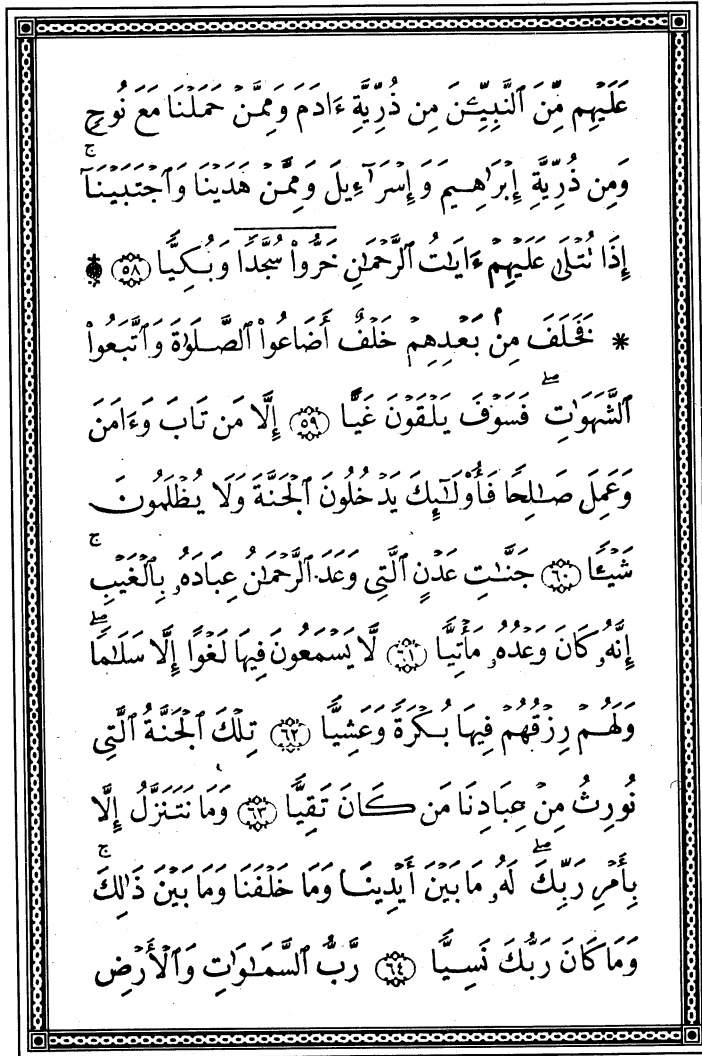 عَلَيْهِم مِّنَ ٱلنَّبِيِّـۧنَ مِن ذُرِّيَّةِ ءَادَمَ وَمِمَّنْ حَمَلْنَا مَعَ نُوحٍ
وَمِن ذُرِّيَّةِ إِبْرَٰهِيمَ وَإِسْرَٰٓءِيلَ وَمِمَّنْ هَدَيْنَا وَٱجْتَبَيْنَآ ۚ
إِذَا تُتْلَىٰ عَلَيْهِمْ ءَايَٰتُ ٱلرَّحْمَٰنِ خَرُّوا۟ سُجَّدًا وَبُكِيًّا ۩ ٥٨
* فَخَلَفَ مِنۢ بَعْدِهِمْ خَلْفٌ أَضَاعُوا۟ ٱلصَّلَوٰةَ وَٱتَّبَعُوا۟
ٱلشَّهَوَٰتِ ۖ فَسَوْفَ يَلْقَوْنَ غَيًّا ٥٩ إِلَّا مَن تَابَ وَءَامَنَ
وَعَمِلَ صَٰلِحًا فَأُو۟لَٰٓئِكَ يَدْخُلُونَ ٱلْجَنَّةَ وَلَا يُظْلَمُونَ
شَيْـًٔا ٦٠ جَنَّٰتِ عَدْنٍ ٱلَّتِى وَعَدَ ٱلرَّحْمَٰنُ عِبَادَهُۥ بِٱلْغَيْبِ ۚ
إِنَّهُۥ كَانَ وَعْدُهُۥ مَأْتِيًّا ٦١ لَّا يَسْمَعُونَ فِيهَا لَغْوًا إِلَّا سَلَٰمًا ۖ
وَلَهُمْ رِزْقُهُمْ فِيهَا بُكْرَةً وَعَشِيًّا ٦٢ تِلْكَ ٱلْجَنَّةُ ٱلَّتِى
نُورِثُ مِنْ عِبَادِنَا مَن كَانَ تَقِيًّا ٦٣ وَمَا نَتَنَزَّلُ إِلَّا
بِأَمْرِ رَبِّكَ ۖ لَهُۥ مَا بَيْنَ أَيْدِينَا وَمَا خَلْفَنَا وَمَا بَيْنَ ذَٰلِكَ ۚ
وَمَا كَانَ رَبُّكَ نَسِيًّا ٦٤ رَّبُّ ٱلسَّمَٰوَٰتِ وَٱلْأَرْضِ